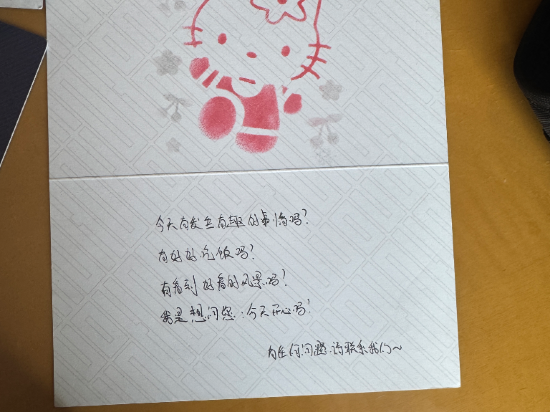 今天有发生有趣的事情吗?
有好好吃饭吗?
有看到好看的风景吗?
我是想问您:今天开心吗?
有任何问题请联系我们~